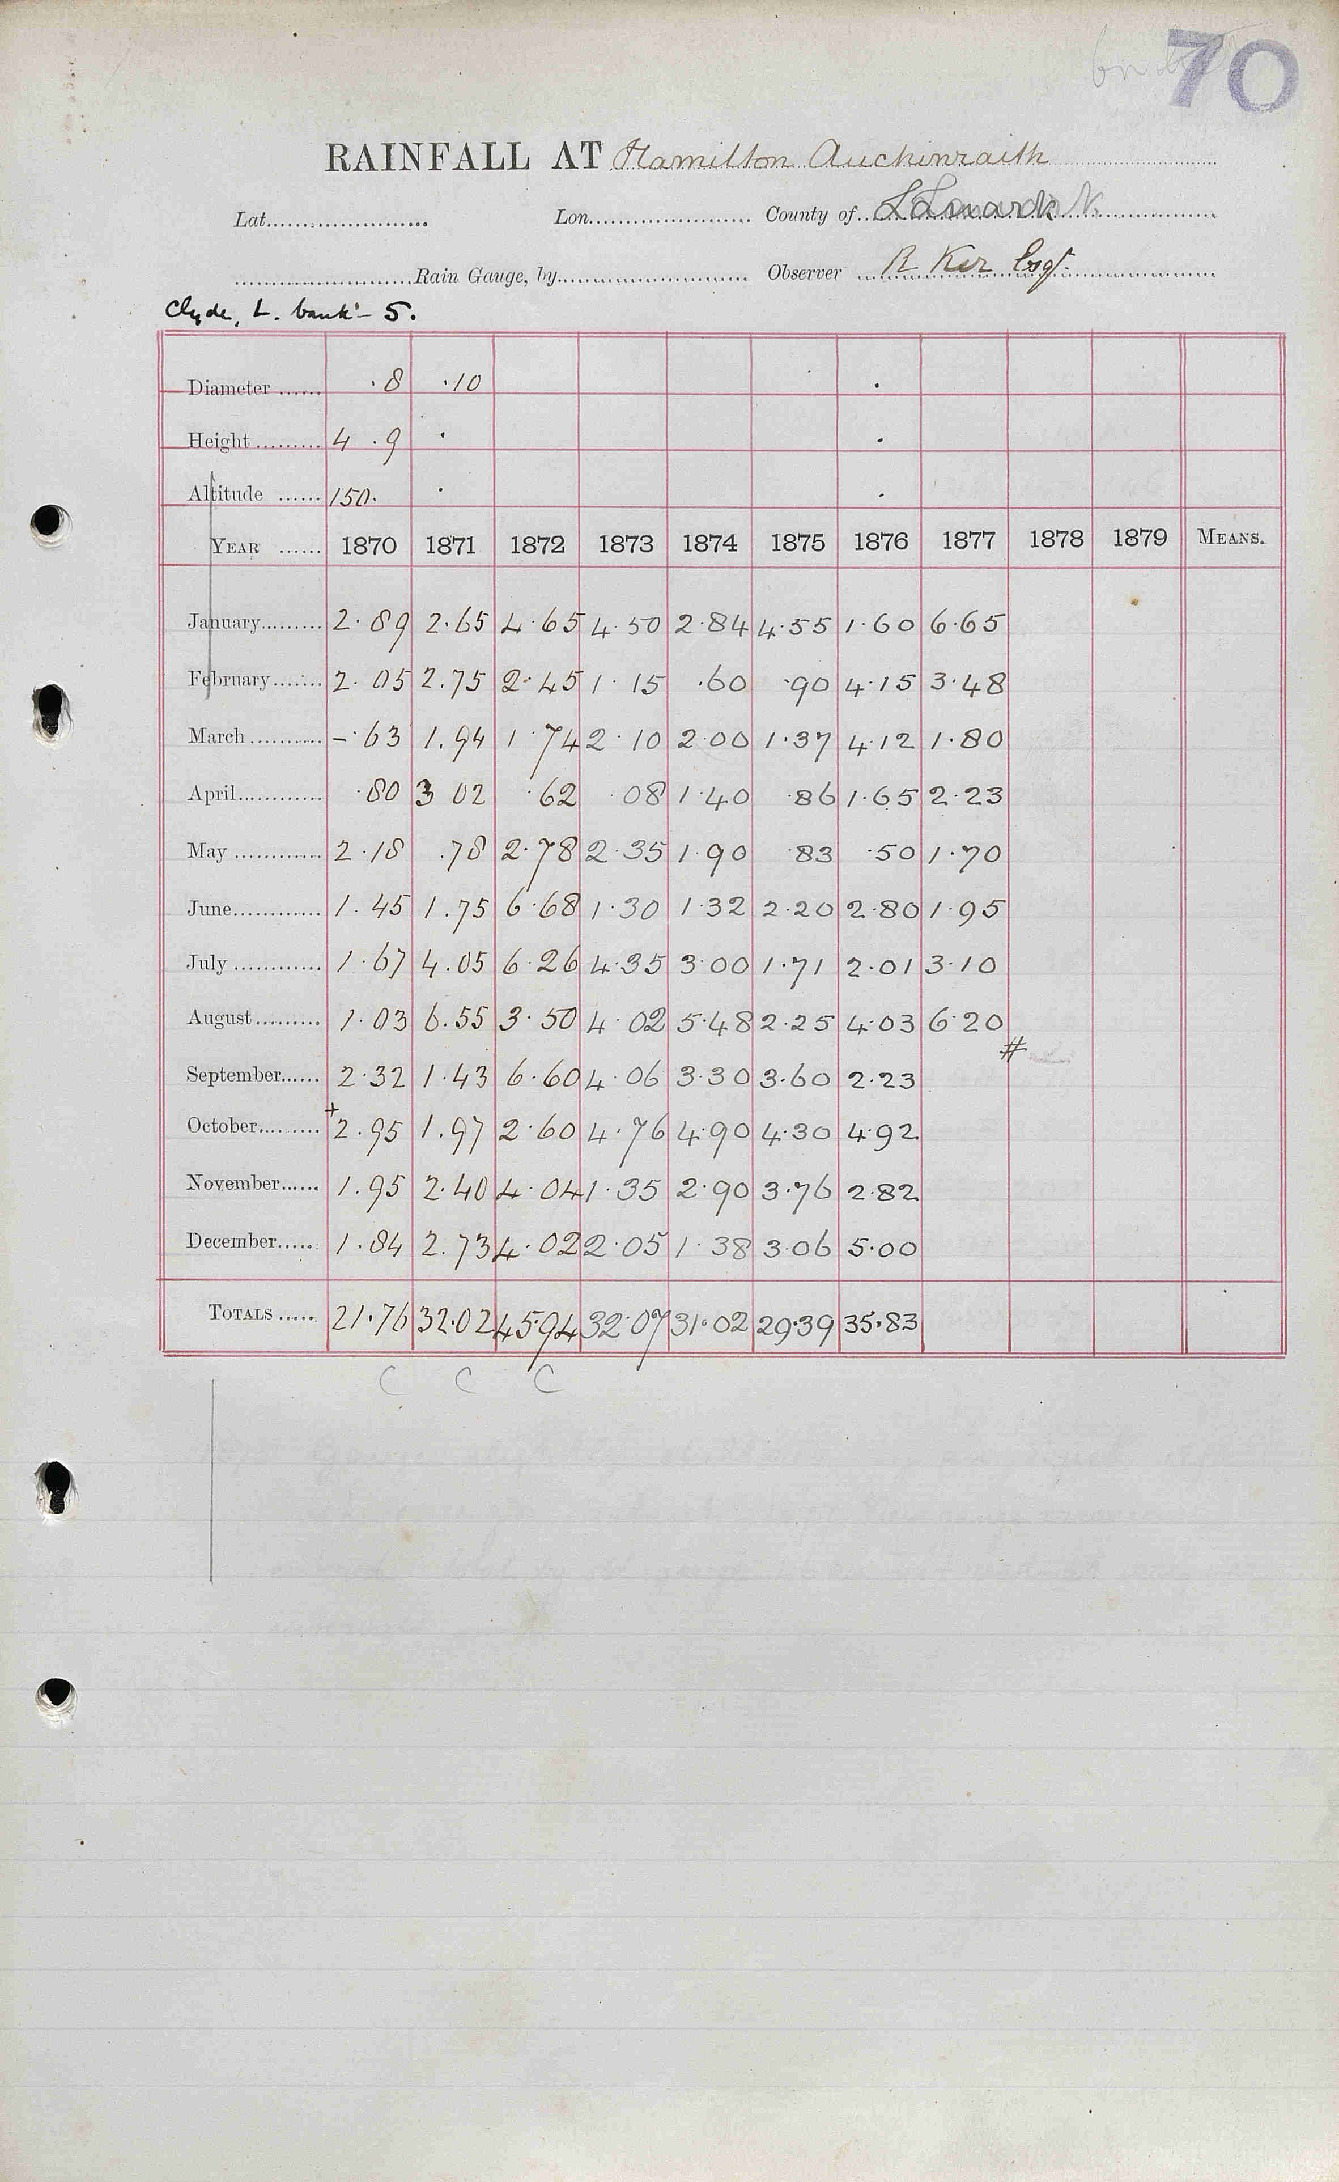 70
RAINFALL AT Hamilton Auchinraith
Lat. Lon. County of Lanark
Rain Gauge, by Observer R Ker Esqr.
Clyde, L. bank - 5.
Diameter ...... .8 .10
Height ...... 4 .9
Altitude ...... 150.
YEAR ...... 1870 1871 1872 1873 1874 1875 1876 1877 1878 1879 MEANS.
January 2.89 2.65 4.65 4.50 2.84 4.55 1.60 6.65
February 2.05 2.75 2.45 1.15 .60 .90 4.15 3.48
March -.63 1.94 1.74 2.10 2.00 1.37 4.12 1.80
April .80 3 02 .62 .08 1.40 .86 1.65 2.23
May 2.18 .78 2.78 2.35 1.90 .83 .50 1.70
June 1.45 1.75 6.68 1.30 1.32 2.20 2.80 1.95
July 1.67 4.05 6.26 4.35 3.00 1.71 2.01 3.10
August 1.03 6.55 3.50 4.02 5.48 2.25 4.03 6.20
#
September 2.32 1.43 6.60 4.06 3.30 3.60 2.23
October +2.95 1.97 2.60 4.76 4.90 4.30 4.92
November 1.95 2.40 4.04 1.35 2.90 3.76 2.82
December 1.84 2.73 4.02 2.05 1.38 3.06 5.00
TOTALS 21.76 32.02 45.94 32.07 31.02 29.39 35.83
C C C